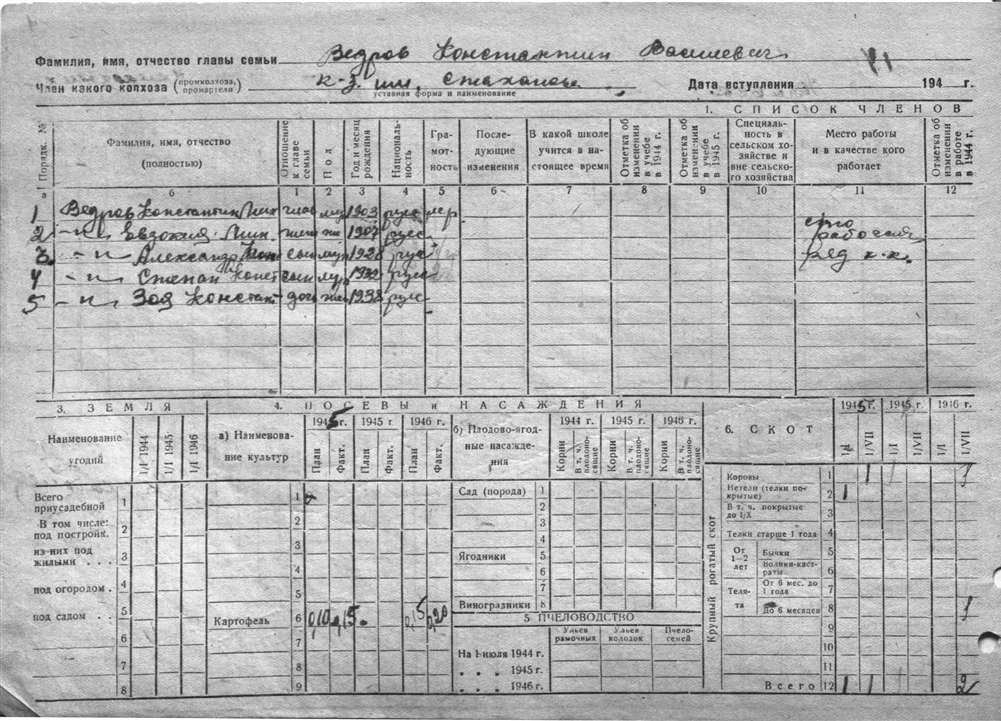 Фамилия, имя, отчество главы семьи Ведров Константин Василевич
Член какого колхоза (промколхоза, промартели) к-з. им. Стаханова Дата вступления 194 г.
уставная форма и наименование
1. СПИСОК ЧЛЕНОВ
Порядк. №
Фамилия, имя, отчество (полностью)
Отношение к главе семьи
Пол
Год и месяц рождения
Националь-ность
Гра-мот-ность
После-дующие изменения
В какой школе учится в на-стоящее время
Отметка об изменении в учебе в 1944 г.
Отметка об изменении в учебе в 1945 г.
Специаль-ность в сельском хо-зяйстве и вне сельско-го хозяйства
Место работы и в качестве кого работает
Отметка об изменении в работе в 1944 г.
а б 1 2 3 4 5 6 7 8 9 10 11 12
1 Ведров Константин 1903 рус
2 -"- Евдокия 1907 рус
3. -"- Александр 1928 рус
4 -"- Степан Конст 1932 рус
5 -"- Зоя Констант 1938 рус
3. ЗЕМЛЯ
Наименование угодий
1/I 1944
1/I 1945
1/I 1946
Всего приусадебной 1
В том числе: под постройк. 2
из них под жилыми . . . 3
под огородом . 4
под садом . . . 5
6
7
8
4. ПОСЕВЫ и НАСАЖДЕНИЯ
а) Наименова-ние культур
1945 г. 1945 г. 1946 г.
План Факт. План Факт. План Факт.
1
2
3
4
5
Картофель 6 0,10 0,15 0,15 0,20
7
8
9
б) Плодово-ягод-ные насажде-ния
1944 г. 1945 г. 1946 г.
Корни В т. ч. плодоно-сящие Корни В т. ч. плодоно-сящие Корни В т. ч. плодоно-сящие
Сад (порода) 1
2
3
4
Ягодники 5
6
7
Виноградники 8
5 ПЧЕЛОВОДСТВО
Ульев рамочных Ульев колодок Пчело-семей
На 1 июля 1944 г.
. . . 1945 г.
. . . 1946 г.
6. СКОТ
1945 г. 1945 г. 1946 г.
1/I 1/VII 1/I 1/VII 1/I 1/VII
Крупный рогатый скот
Коровы 1 1 1
Нетели (телки по-крытые) 2 1
В т. ч. покрытые до 1/X 3
Телки старше 1 года 4
От 1—2 лет Бычки 5
Волики-каст-раты 6
Теля-та От 6 мес. до 1 года 7
До 6 месяцев 8 1
9
10
11
Всего 12 1 1 2